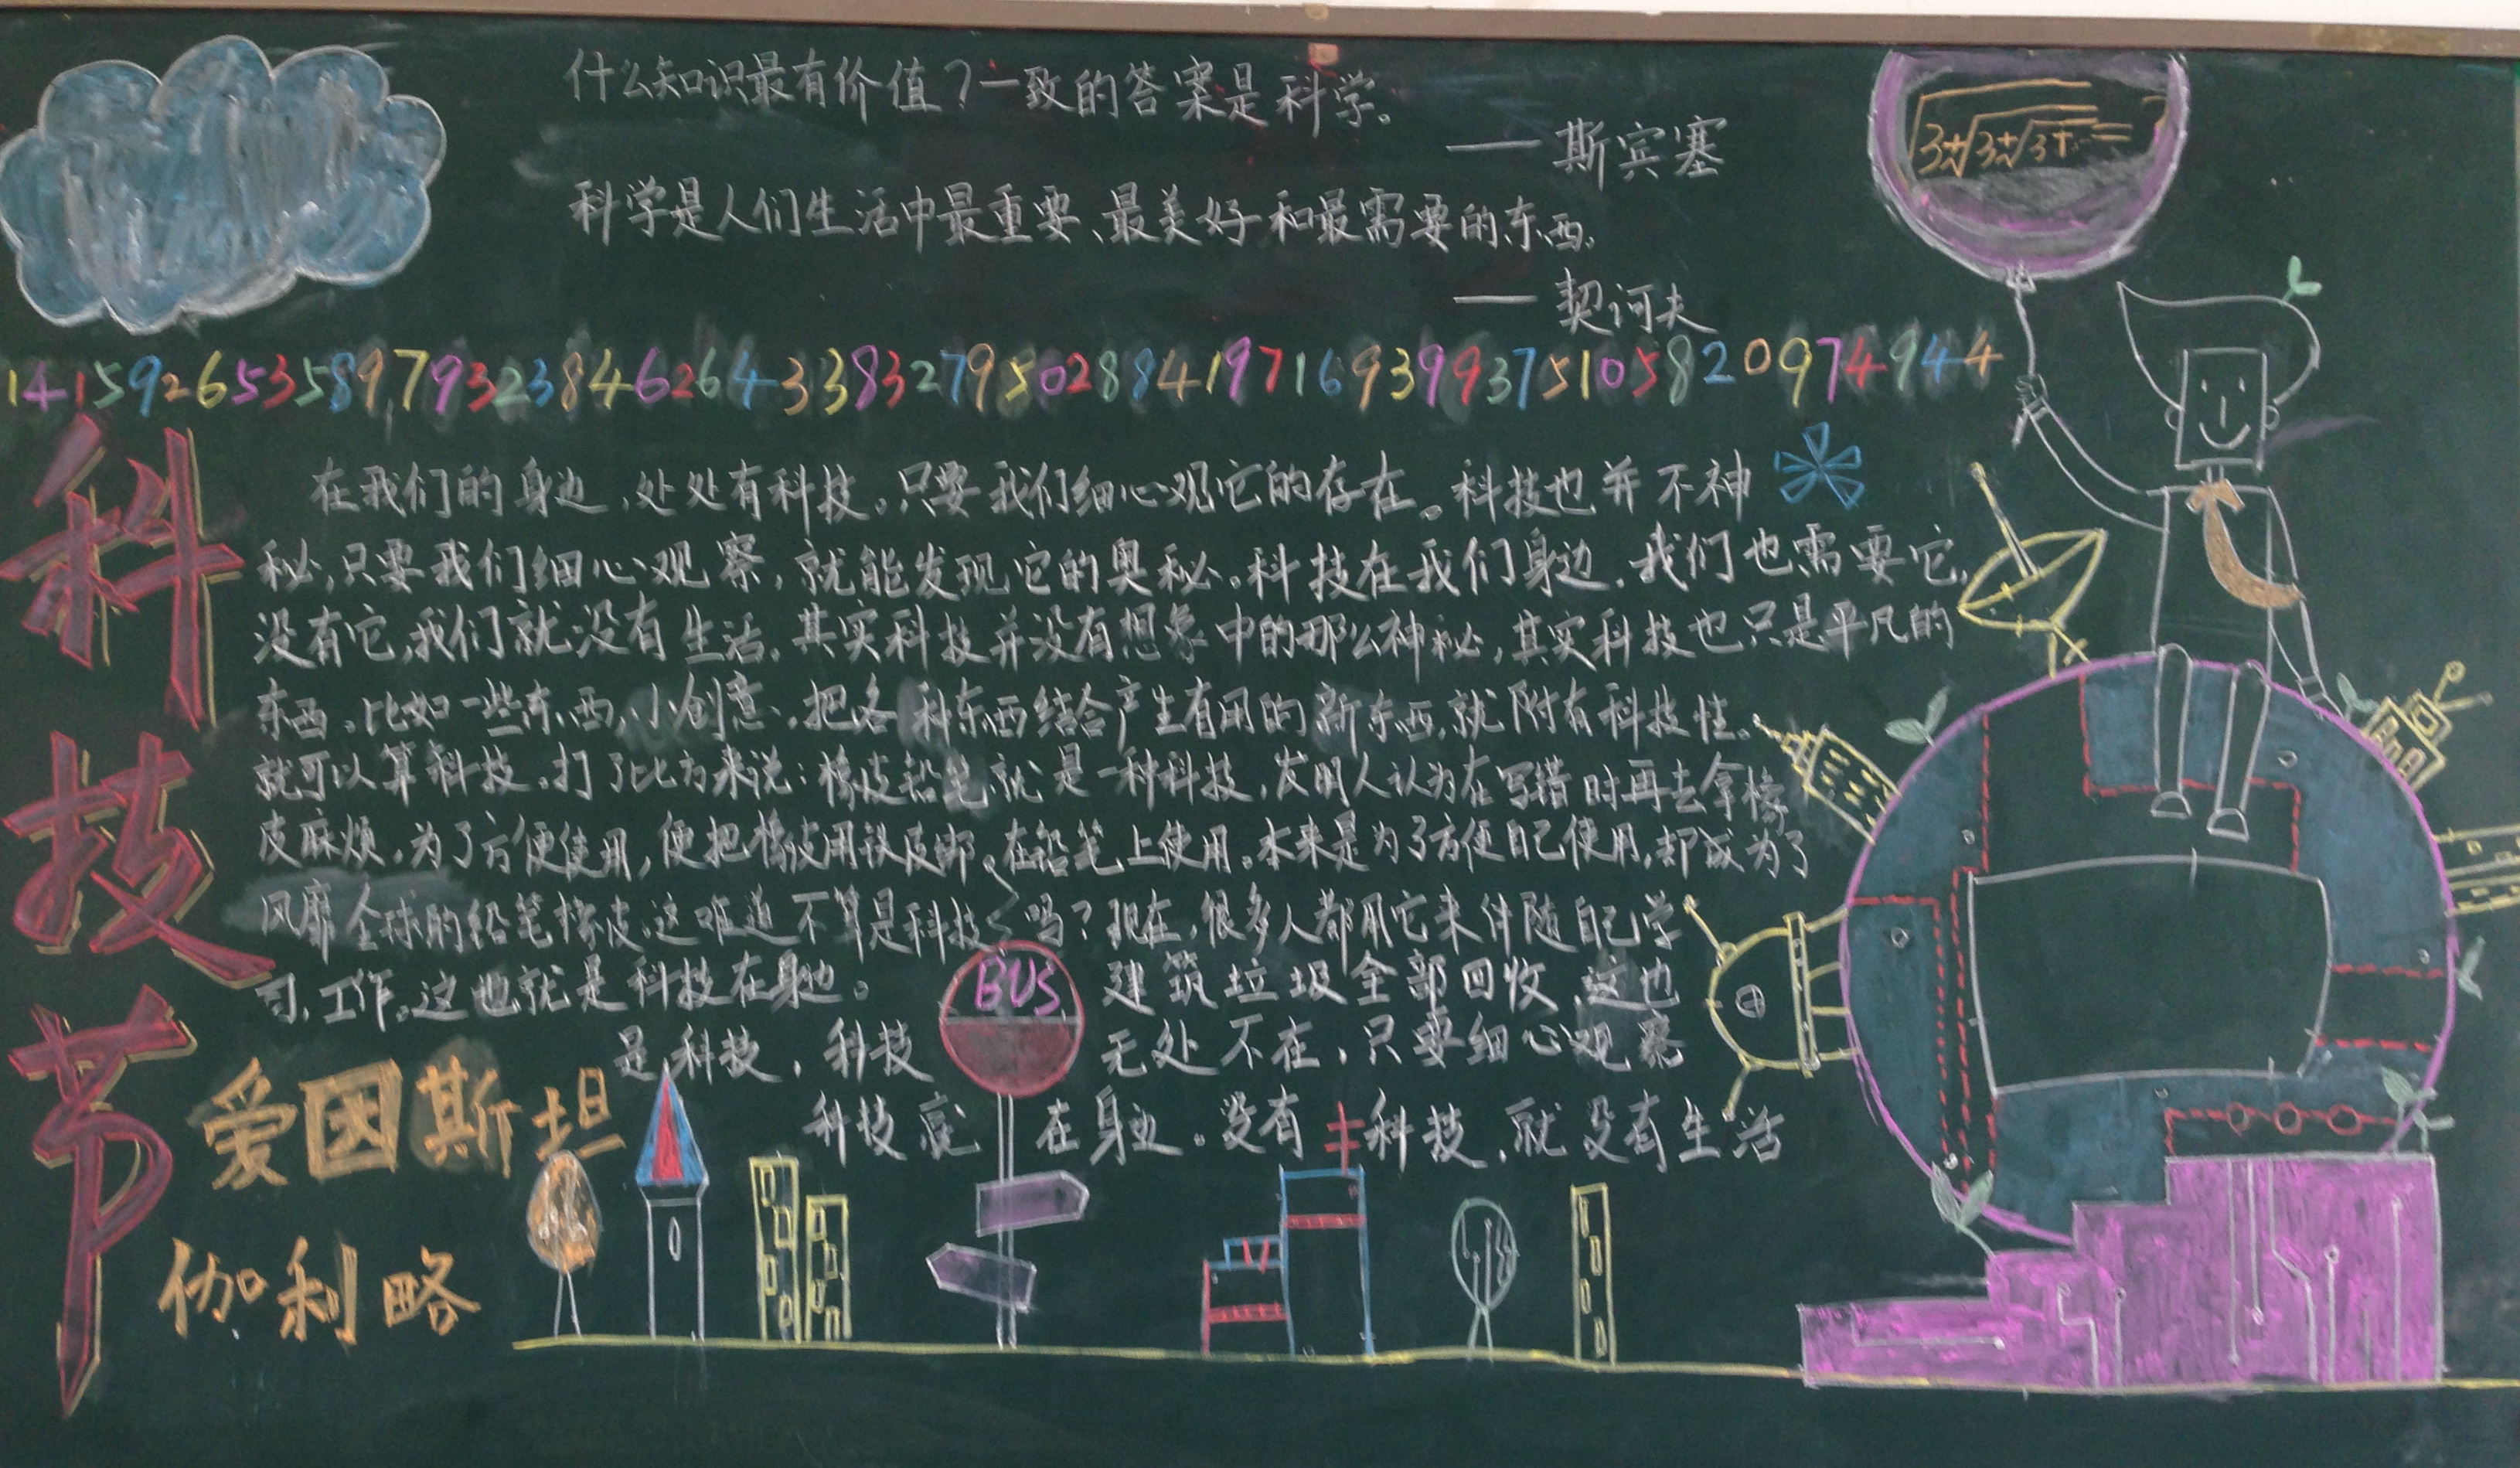 什么知识最有价值？一致的答案是科学。
——斯宾塞
科学是人们生活中最重要、最美好和最需要的东西。
——契诃夫
3+√3+√3+……=
141592653589793238462643383279502884197169399375105820974944
科技节
在我们的身边,处处有科技。只要我们细心观它的存在。科技也并不神
秘,只要我们细心观察,就能发现它的奥秘。科技在我们身边,我们也需要它,
没有它,我们就没有生活,其实科技并没有想象中的那么神秘,其实科技也只是平凡的
东西。比如一些东西,小创意,把各种东西结合产生有用的新东西,就附有科技性。
就可以算科技。打了比方来说：橡皮铅笔就是一种科技,发明人认为在写错时再去拿橡
皮麻烦,为了方便使用,便把橡皮用铁皮绑。在铅笔上使用。本来是为了方便自己使用,却成为了
风靡全球的铅笔橡皮,这难道不算是科技吗？现在,很多人都用它来伴随自己学
习,工作。这也就是科技在身边。
BUS
建筑垃圾全部回收,这也
是科技,科技无处不在,只要细心观察
科技就在身边。没有科技,就没有生活
爱因斯坦
伽利略